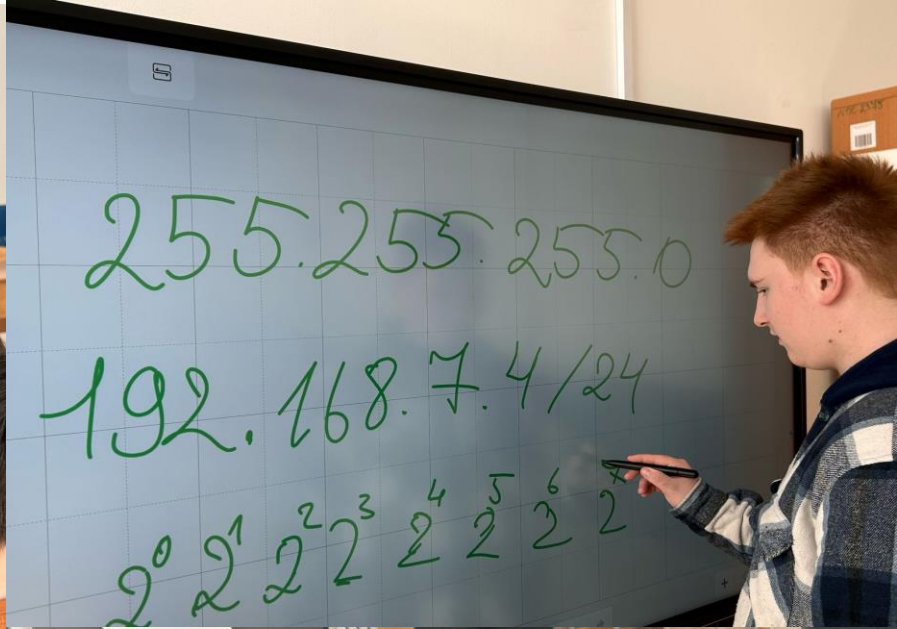 255.255.255.0
192.168.7.4/24
2⁰ 2¹ 2² 2³ 2⁴ 2⁵ 2⁶ 2⁷